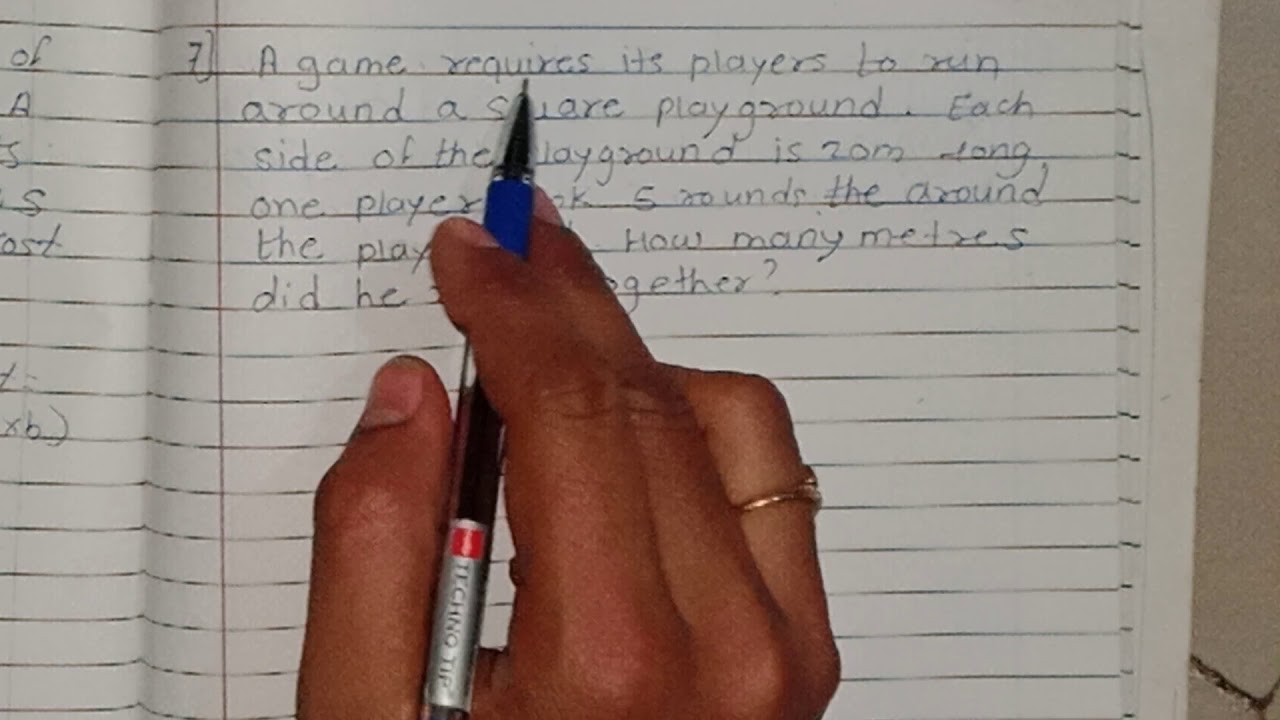 of
A
s
s
ost
t:-
xb)
7] A game requires its players to run
around a square playground. Each
side of the playground is 20m long,
one player 5 rounds the around
the play How many metres
did he together?
TECHNO TIP